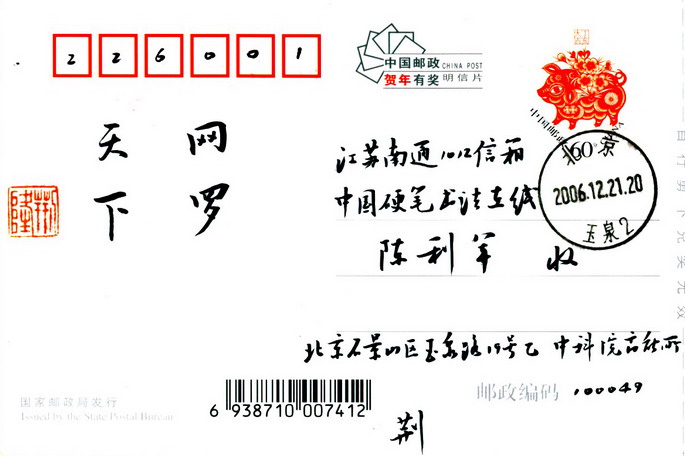 226001
中国邮政 CHINA POST
贺年有奖 明信片
网罗
天下
江苏南通1012信箱
中国硬笔书法在线
陈利军 收
北京
2006.12.21.20
玉泉2
北京石景山区玉泉路19号乙 中科院高能所
邮政编码 100049
荆
国家邮政局发行
Issued by the State Postal Bureau
6 938710 007412